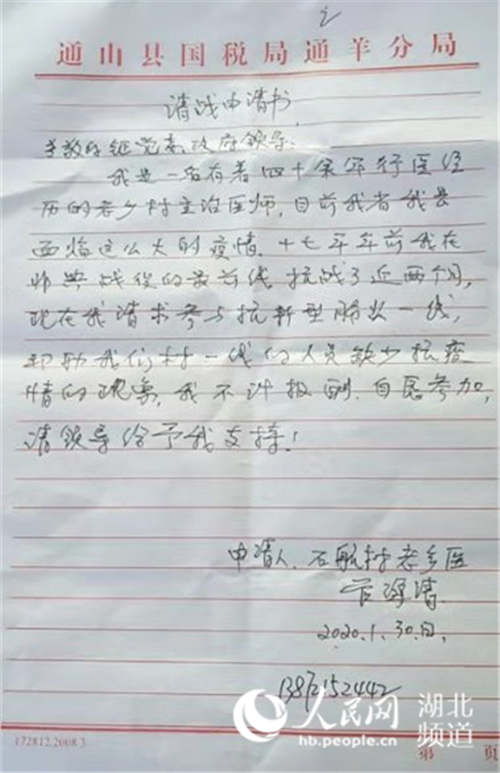 通山县国税局通羊分局
请战申请书
尊敬的组党委政府领导：
我是一名有着四十余年行医经
历的老乡村主治医师，目前我省我县
面临这么大的疫情，十七年前我在
非典战役的最前线抗战了近两个月，
现在我请求参与抗新型肺炎一线，
帮助我们村一线的人员缺少抗疫
情的现象，我不计报酬，自愿参加，
请领导给予我支持！
申请人：石航村老乡医
2020.1.30日.
人民网 湖北频道
hb.people.cn
172812.2008 3
第 页